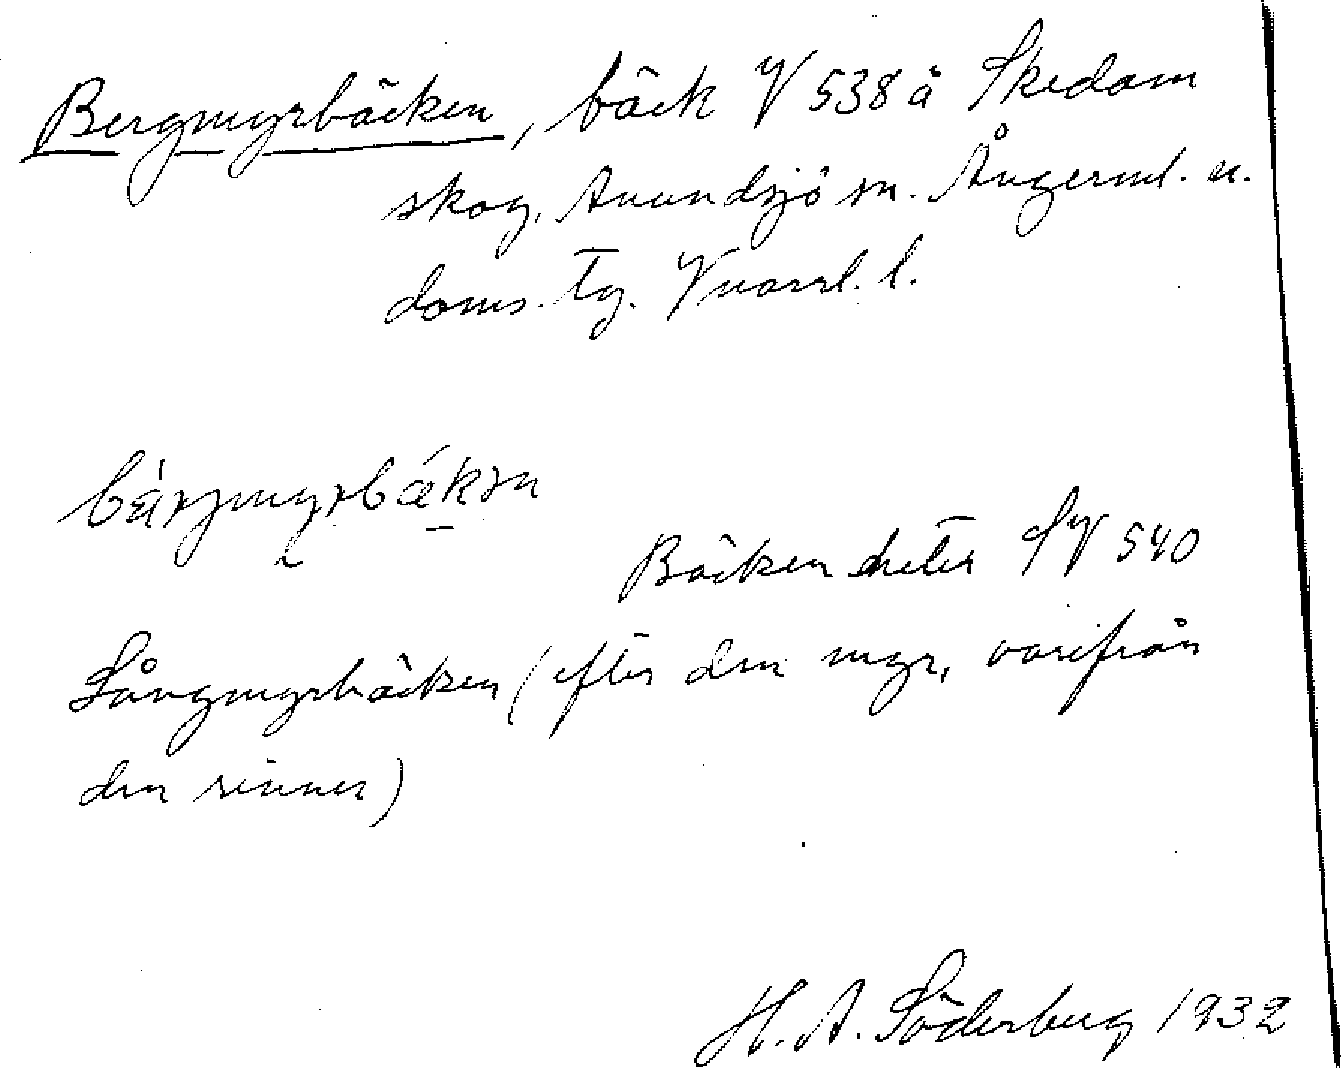 Bergmyrbäcken, bäck V 538 å Skedom
skog, Anundsjö sn. Ångerml. n.
doms. tg. Vnorrl. l.
bärjmyrbäkən
Bäcken heter SV 540
Långmyrbäcken (efter den myr, varifrån
den rinner)
H. A. Söderberg 1932